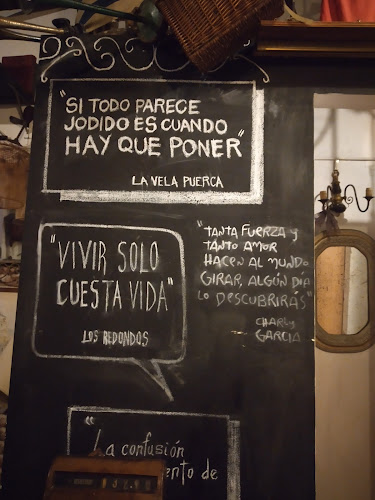 "SI TODO PARECE
JODIDO ES CUANDO
HAY QUE PONER"
LA VELA PUERCA
"VIVIR SOLO
CUESTA VIDA"
LOS REDONDOS
"TANTA FUERZA Y
TANTO AMOR
HACEN AL MUNDO
GIRAR, ALGÚN DÍA
LO DESCUBRIRÁS"
CHARLY
GARCIA
"La confusión
ento de